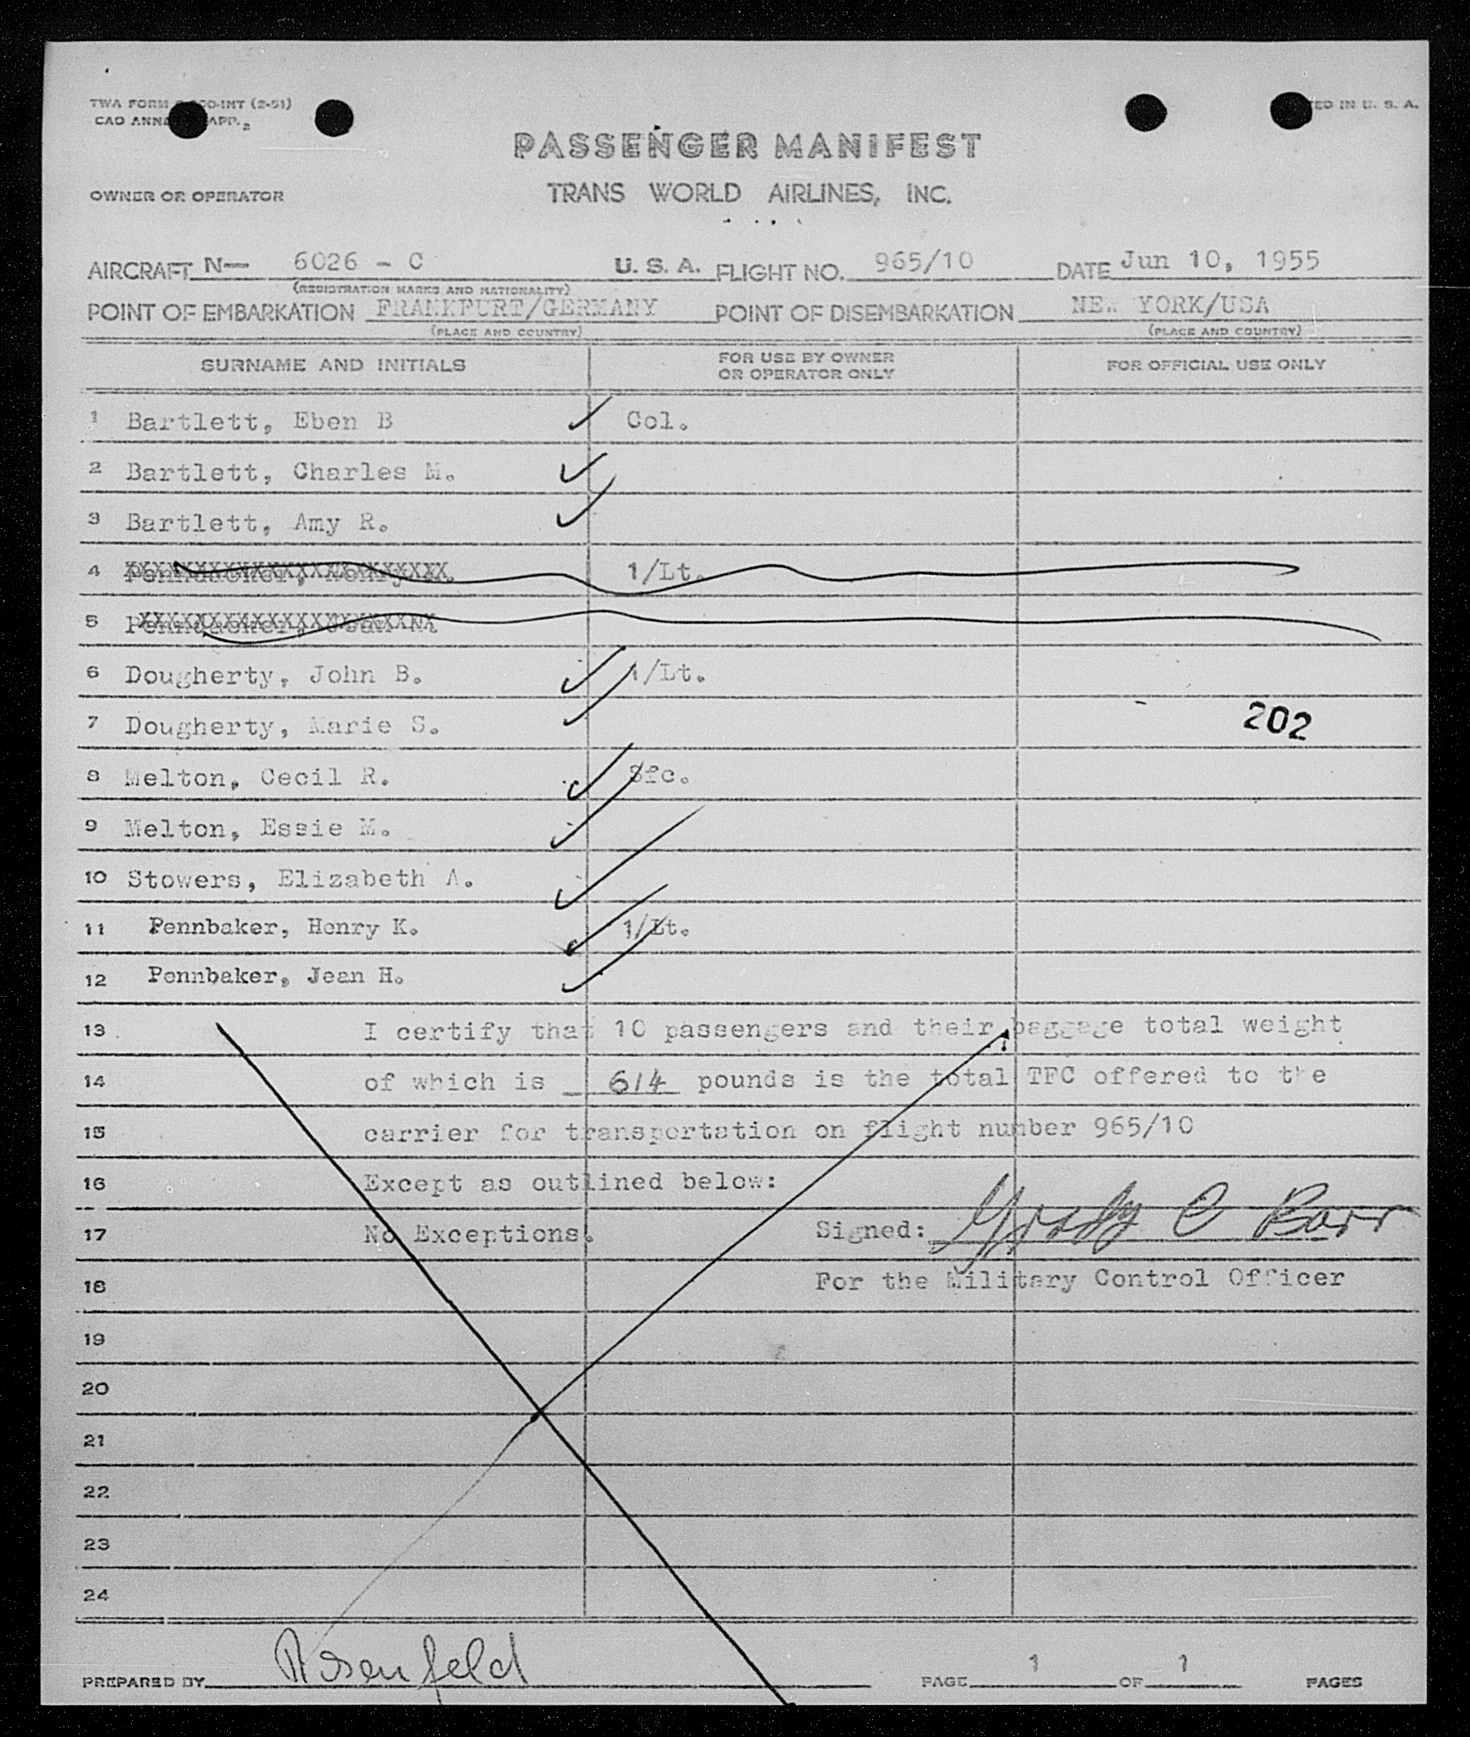 TWA FORM (2-51)
CAO ANNE APP. 2
U. S. A.
PASSENGER MANIFEST
OWNER OR OPERATOR TRANS WORLD AIRLINES, INC.
AIRCRAFT N— 6026 - C U. S. A. FLIGHT NO. 965/10 DATE Jun 10, 1955
(REGISTRATION MARKS AND NATIONALITY)
POINT OF EMBARKATION FRANKFURT/GERMANY POINT OF DISEMBARKATION NEW YORK/USA
(PLACE AND COUNTRY) (PLACE AND COUNTRY)
SURNAME AND INITIALS FOR USE BY OWNER OR OPERATOR ONLY FOR OFFICIAL USE ONLY
1 Bartlett, Eben B Col.
2 Bartlett, Charles M.
3 Bartlett, Amy R.
4 1/Lt.
5
6 Dougherty, John B. 1/Lt.
7 Dougherty, Marie S. 202
8 Melton, Cecil R. Sfc.
9 Melton, Essie M.
10 Stowers, Elizabeth A.
11 Pennbaker, Henry K. 1/Lt.
12 Pennbaker, Jean H.
13 I certify that 10 passengers and their baggage total weight
14 of which is 614 pounds is the total TFC offered to the
15 carrier for transportation on flight number 965/10
16 Except as outlined below:
17 No Exceptions. Signed: Grady C Barr
18 For the Military Control Officer
19
20
21
22
23
24
PREPARED BY Rosenfeld PAGE 1 OF 1 PAGES